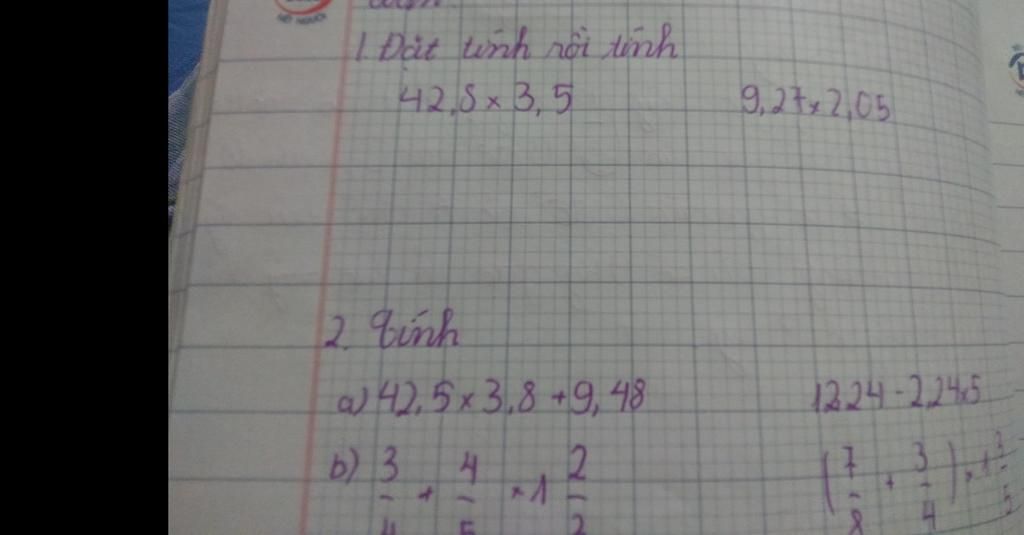 1. Đặt tính rồi tính
42,8 × 3,5 9,27 × 2,05
2. Tính
a) 42,5 × 3,8 + 9,48 12,24 - 2,24 × 5
b) 3/4 + 4/5 × 1 2/ (7/8 + 3/4) × 1